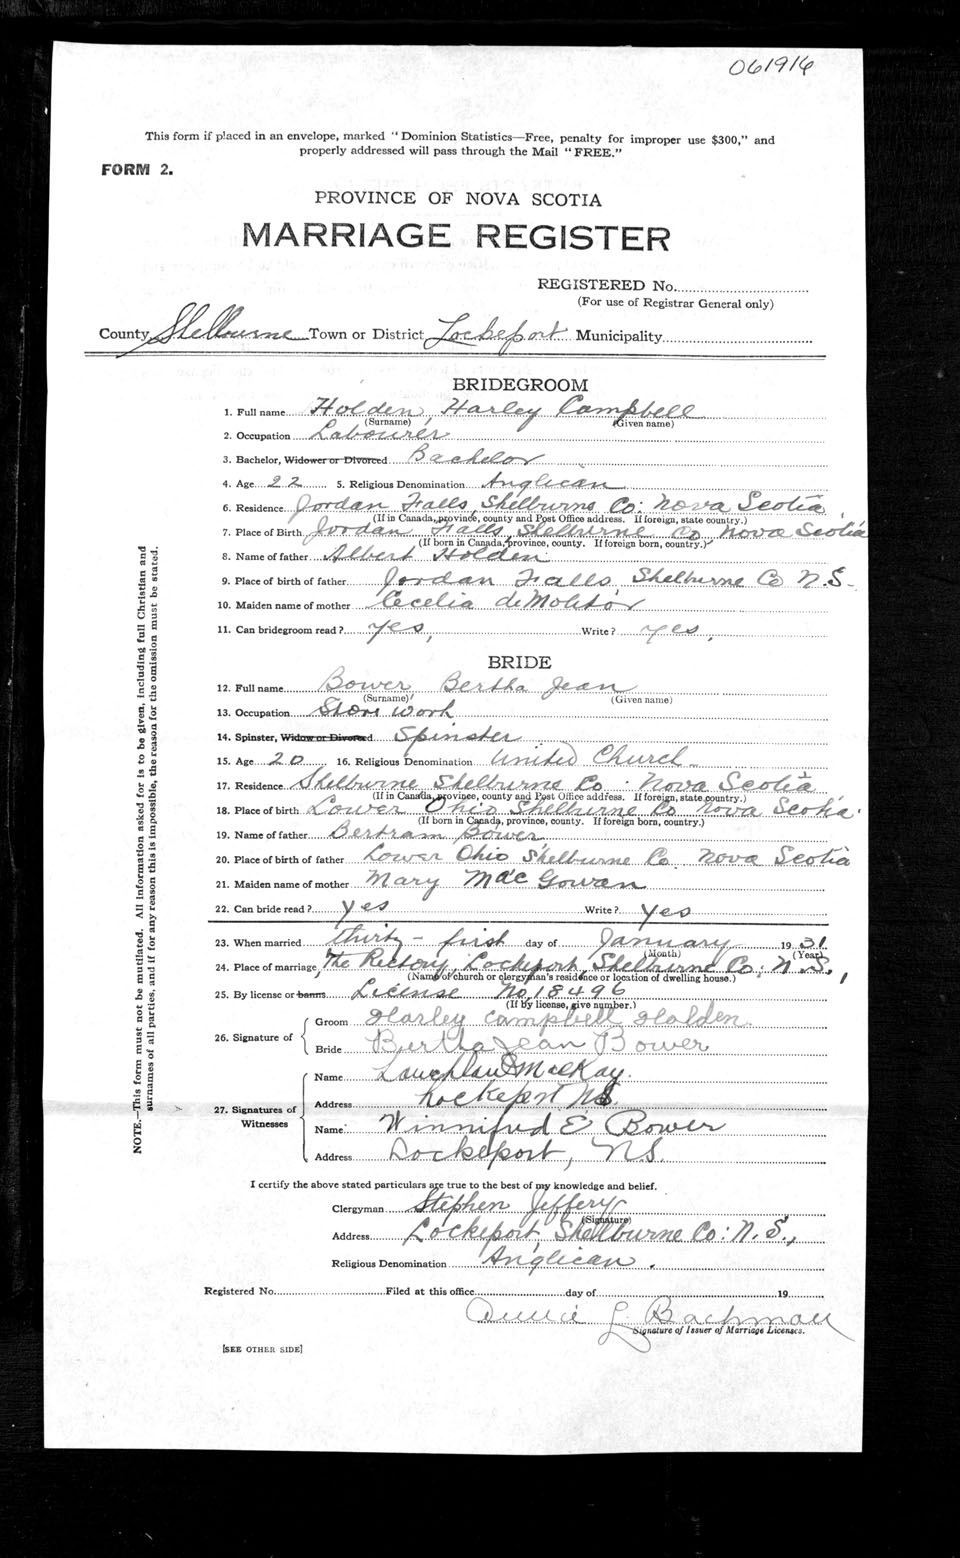 061916
This form if placed in an envelope, marked "Dominion Statistics—Free, penalty for improper use $300," and
properly addressed will pass through the Mail "FREE."
FORM 2.
PROVINCE OF NOVA SCOTIA
MARRIAGE REGISTER
REGISTERED No.
(For use of Registrar General only)
County Shelburne Town or District Lockeport Municipality
BRIDEGROOM
1. Full name Holden, Harley Campbell
(Surname) (Given name)
2. Occupation Labourer
3. Bachelor, Widower or Divorced Bachelor
4. Age 22 5. Religious Denomination Anglican
6. Residence Jordan Falls, Shelburne Co: Nova Scotia
(If in Canada, province, county and Post Office address. If foreign, state country.)
7. Place of Birth Jordan Falls, Shelburne Co Nova Scotia
(If born in Canada, province, county. If foreign born, country.)
8. Name of father Albert Holden
9. Place of birth of father Jordan Falls, Shelburne Co N.S.
10. Maiden name of mother Cecelia deMolitor
11. Can bridegroom read? yes, Write? yes,
BRIDE
12. Full name Bower Bertha Jean
(Surname) (Given name)
13. Occupation Store work
14. Spinster, Widow or Divorced Spinster
15. Age 20 16. Religious Denomination United Church
17. Residence Shelburne Shelburne Co: Nova Scotia
(If in Canada, province, county and Post Office address. If foreign, state country.)
18. Place of birth Lower Ohio Shelburne Co Nova Scotia.
(If born in Canada, province, county. If foreign born, country.)
19. Name of father Bertram Bower
20. Place of birth of father Lower Ohio Shelburne Co Nova Scotia
21. Maiden name of mother Mary MacGowan
22. Can bride read? yes Write? yes
23. When married thirty-first day of January 1931
(Month) (Year)
24. Place of marriage The Rectory, Lockeport, Shelburne Co; N.S.,
(Name of church or clergyman's residence or location of dwelling house.)
25. By license or banns License No 18496
(If by license, give number.)
26. Signature of
Groom Harley Campbell Holden.
Bride Bertha Jean Bower
27. Signatures of Witnesses
Name MacKay.
Address Lockeport NS.
Name Winnifred E Bower
Address Lockeport, N.S.
I certify the above stated particulars are true to the best of my knowledge and belief.
Clergyman Stephen Jeffery
(Signature)
Address Lockeport, Shelburne Co: N.S.,
Religious Denomination Anglican.
Registered No. Filed at this office day of 19
Annie L Bachman
Signature of Issuer of Marriage Licenses.
[SEE OTHER SIDE]
NOTE.—This form must not be mutilated. All information asked for is to be given, including full Christian and
surnames of all parties, and if for any reason this is impossible, the reason for the omission must be stated.